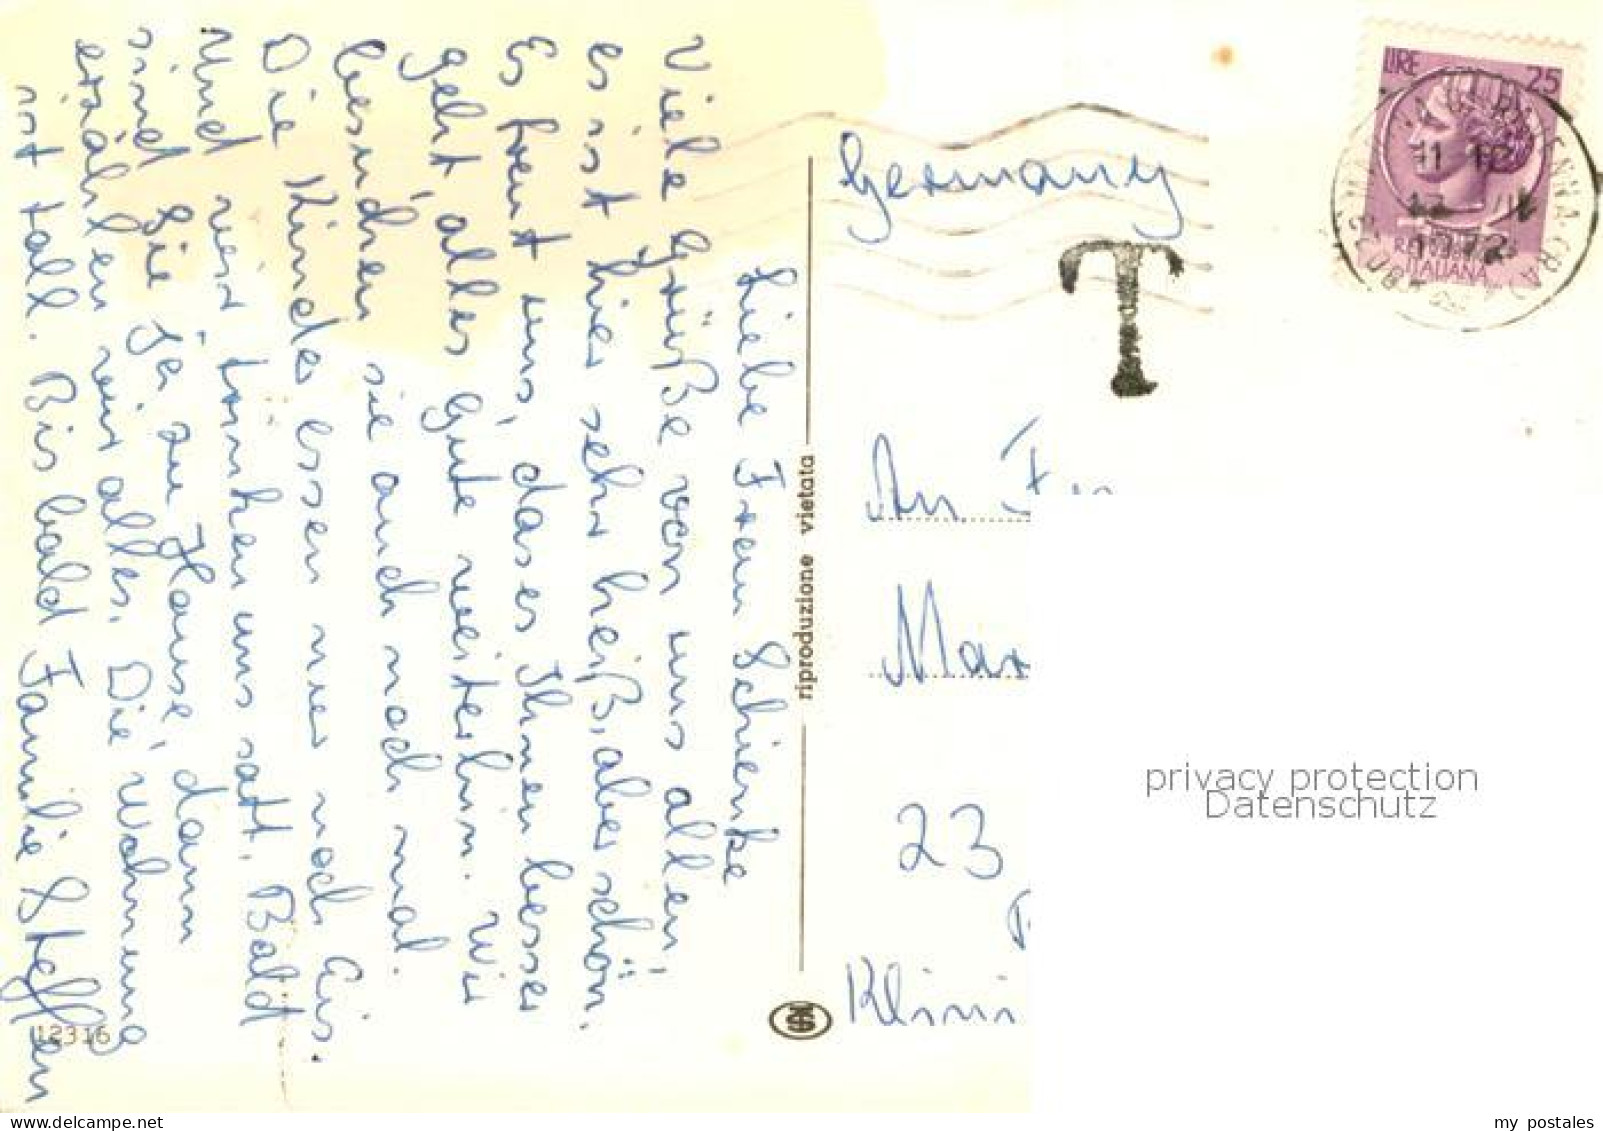 Liebe Frau Schienke
Viele Grüße von uns allen,
es ist hier sehr heiß, aber schön.
Es freut uns, das es Ihnen besser
geht, alles Gute weiterhin. Wir
besuchen sie auch noch mal.
Die Kinder essen nur noch Eis.
Und wir trinken uns satt. Bald
sind Sie ja zu Hause, dann
erzählen wir alles. Die Wohnung
ist toll. Bis bald Familie Steffen
12316
riproduzione vietata
Germany
T
LIRE 25
ITALIANA
An
23
privacy protection
Datenschutz
my postales